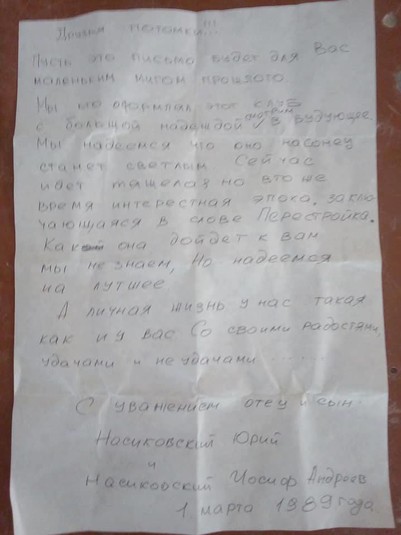 Дорогие потомки!!!
Пусть это письмо будет для Вас
маленьким мигом прошлого.
Мы кто оформлал этот клуб
с большой надеждой смотрим в будующее.
Мы надеемся что оно наконец
станет светлым Сейчас
идет тяжелаз но вто же
время интерестная эпоха, заклю-
чающаяся в слове Перестройка.
Какой она дойдет к вам
мы не знаем, Но надеемся
на лутшее
А личная жизнь у нас такая
как и у вас Со своими радостями,
удачами и не удачами ........
С уважением отец и сын.
Насиковский Юрий
и
Насиковский Иосиф Андреев
1 марта 1989 года